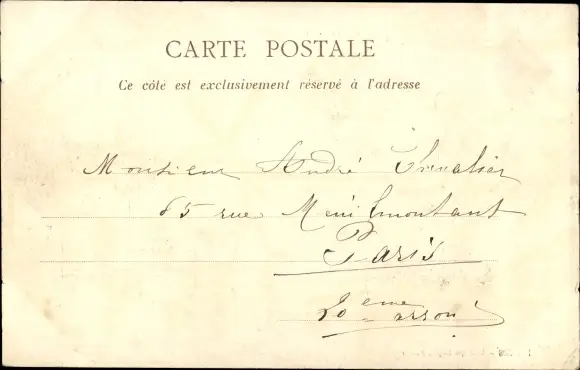 CARTE POSTALE
Ce côté est exclusivement réservé à l'adresse
Monsieur André
85 rue Menilmontant
Paris
20 eme arron